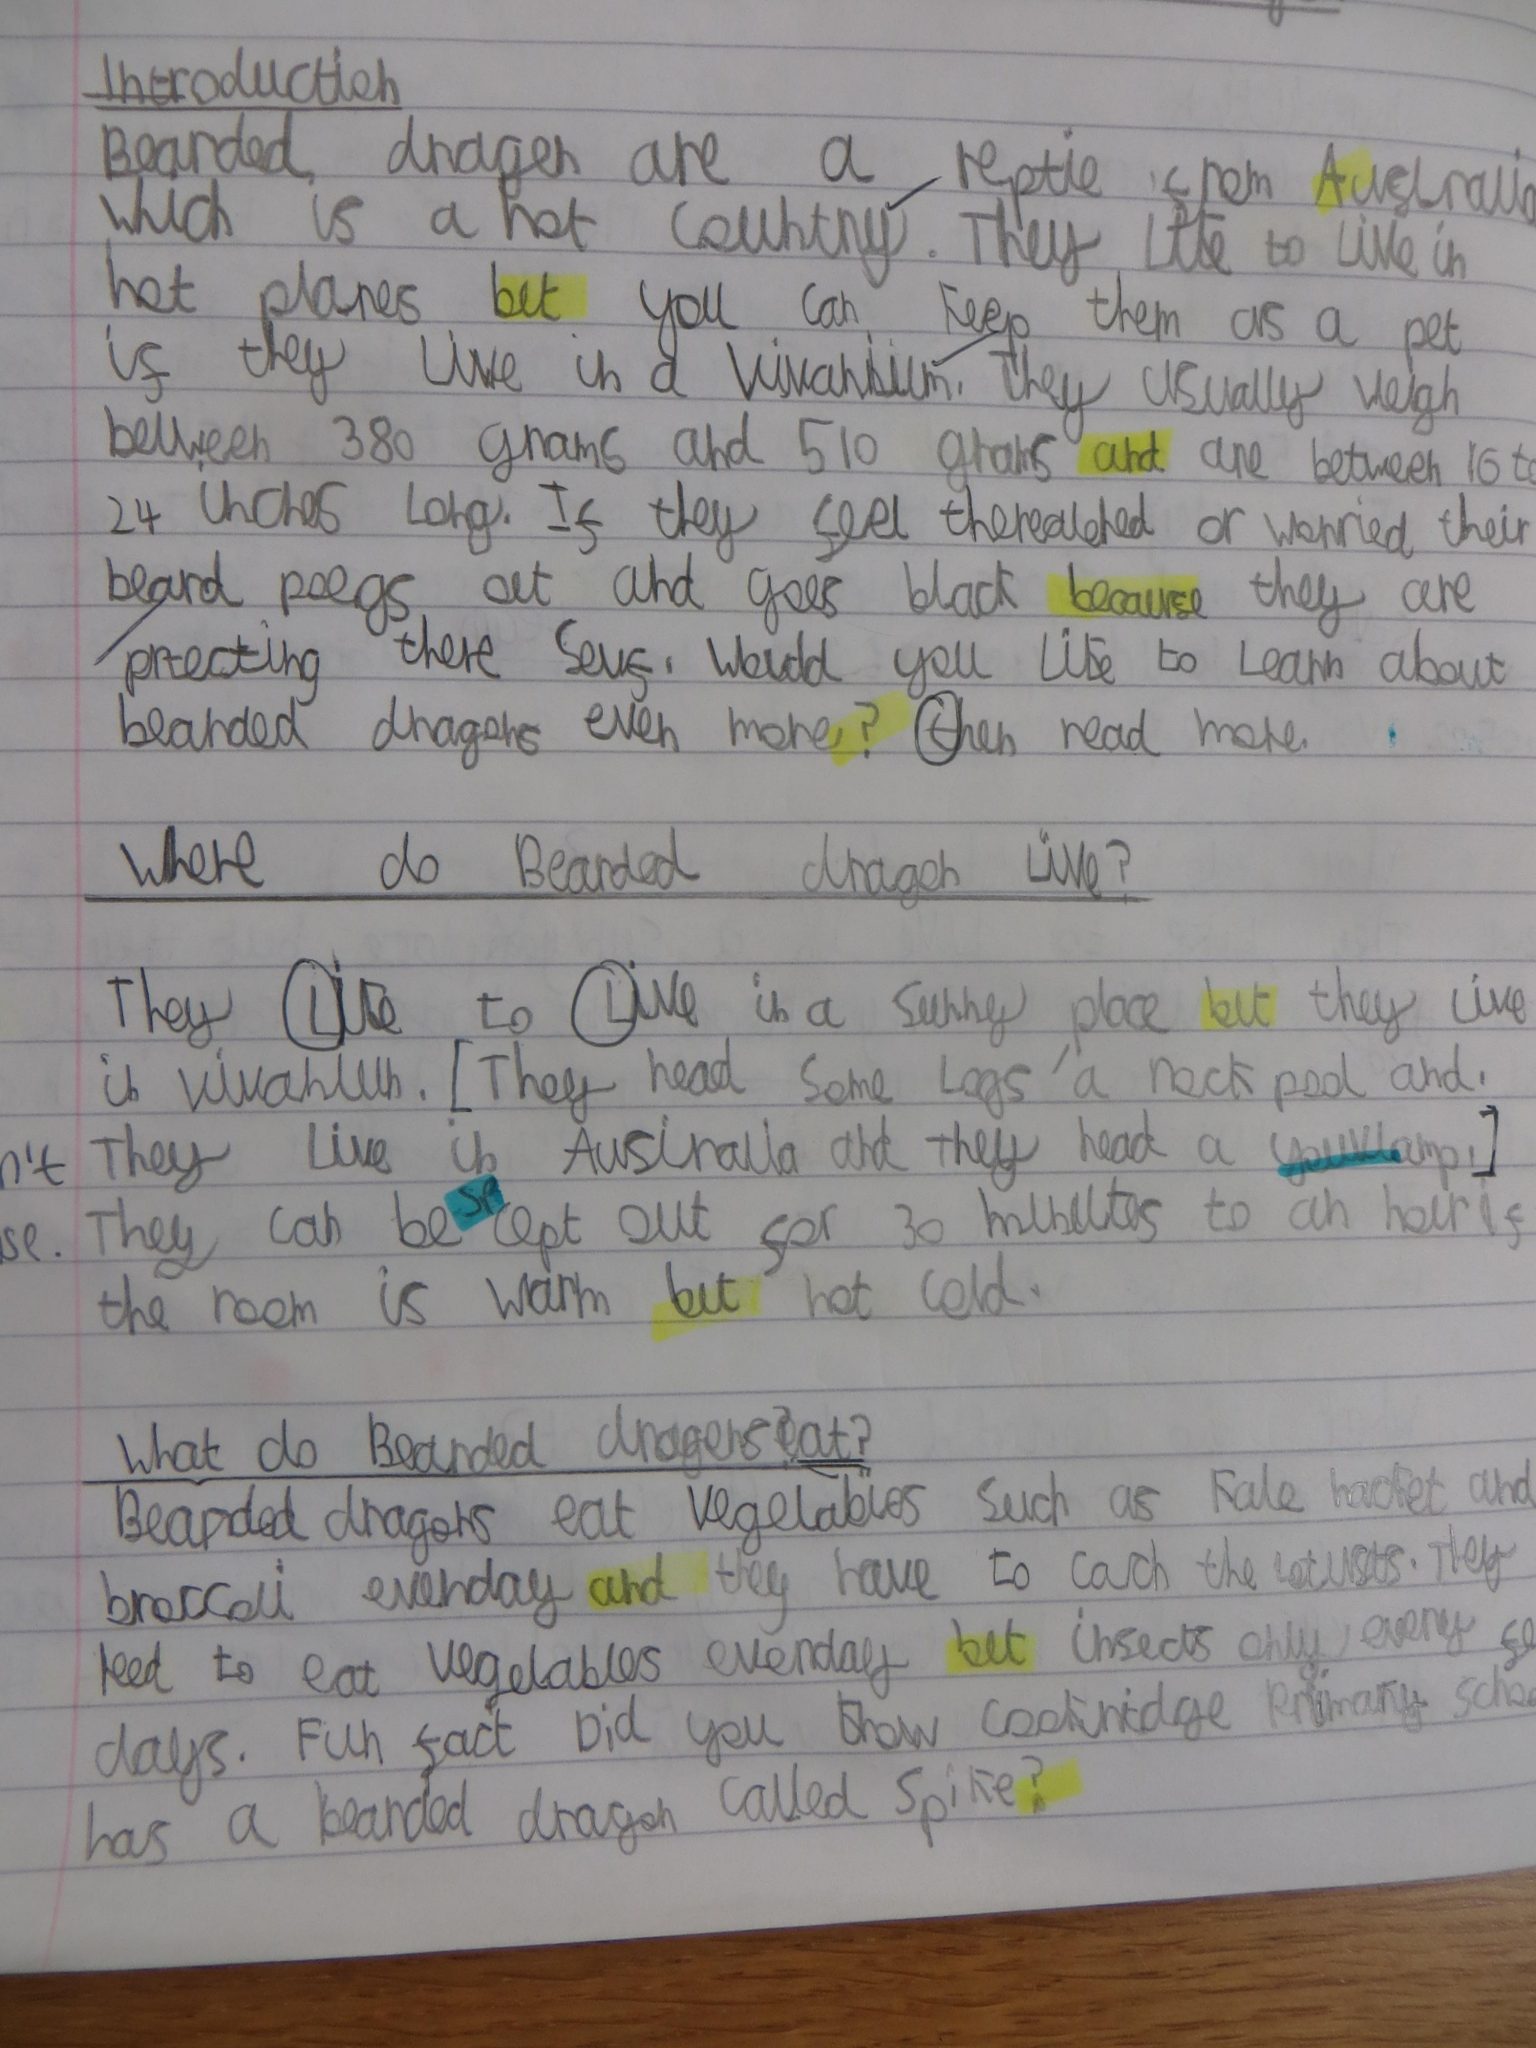 Introduction
Bearded dragon are a reptie from Australia
which is a hot country. They like to live in
hot planes but you can keep them as a pet
if they live in a vivariium. They usually weigh
between 380 grams and 510 grams and are between 16 to
24 inches long. If they feel therealened or worried their
beard poegs out and goes black because they are
prtecting there seus. Would you like to Learn about
bearded dragons even more? then read more.
Where do Bearded dragon Live?
They Like to Live in a sunny place but they live
in vivarium. [They nead some Logs a rock pool and.
n't They live in Australia and they nead a youvlamp.]
sp
se. They can be cept out for 30 minuites to an hour if
the room is warm but not cold.
What do Bearded dragons eat?
Bearded dragons eat vegetables such as kale rocket and
broccoli everyday and they have to cach the locusts. They
need to eat vegetables everyday but insects only every
days. Fun fact Did you know Cookridge Primary
has a bearded dragon called Spike?